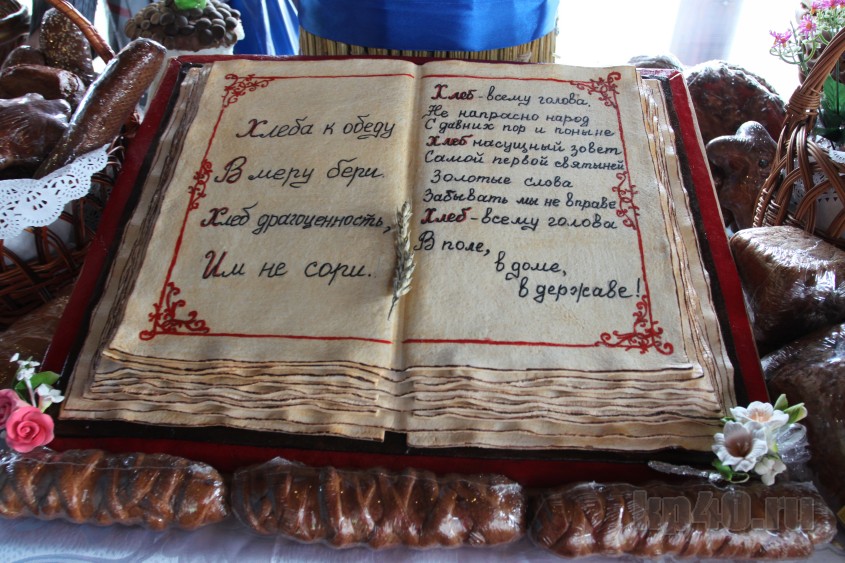 Хлеба к обеду
В меру бери.
Хлеб драгоценность,
Им не сори.
Хлеб - всему голова,
Не напрасно народ
С давних пор и поныне
Хлеб насущный зовет
Самой первой святыней
Золотые слова
Забывать мы не вправе
Хлеб - всему голова
В поле,
в доме,
в державе!
kp40.ru